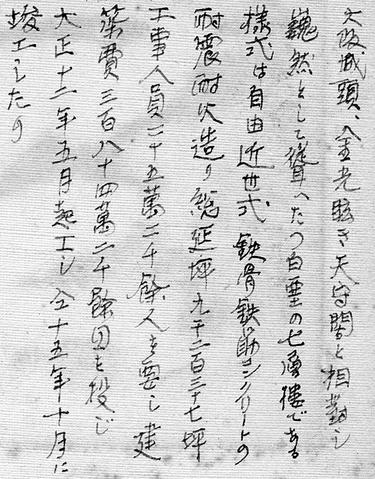 大阪城頭、金光眩き天守閣と相對し
巍然として聳へたつ白堊の七層樓である
様式は自由近世式 鉄骨鉄筋コンクリートの
耐震耐火造り 総延坪九千二百三十七坪
工事人員二十五萬二千餘人を要し建
築費三百八十四萬二千餘円を投じ
大正十二年五月起工し 仝十五年十月に
竣工したの